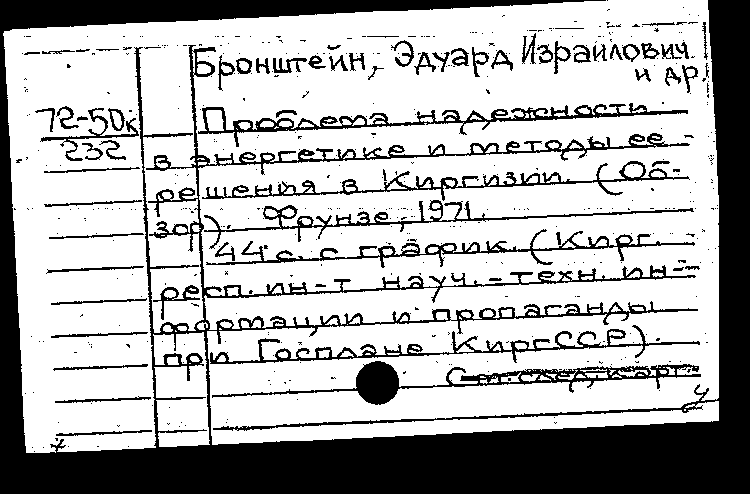 Бронштейн, Эдуард Израилович
и др.
72-50к
232
Проблема надежности
в энергетике и методы ее
решения в Киргизии. (Об-
зор). Фрунзе, 1971.
44 с. с график. (Кирг.
респ. ин-т науч.-техн. ин-
формации и пропаганды
при Госплане КиргССР).
См. след. карт.